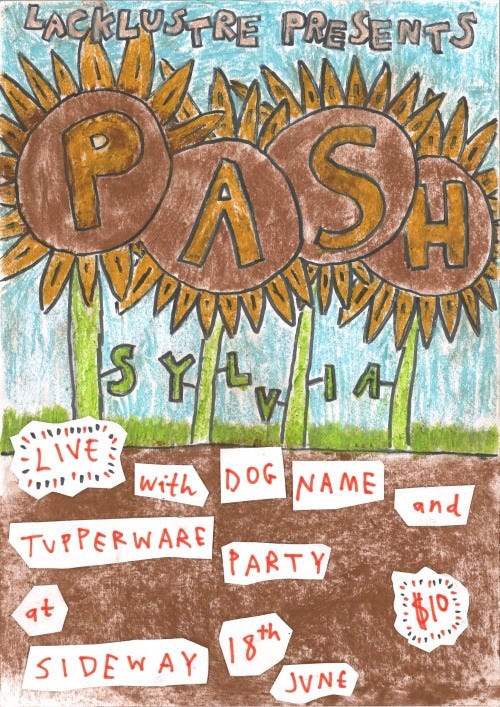 LACKLUSTRE PRESENTS
PASH
SYLVIA
LIVE
with DOG NAME and
TUPPERWARE PARTY
$10
at
SIDEWAY 18th JUNE